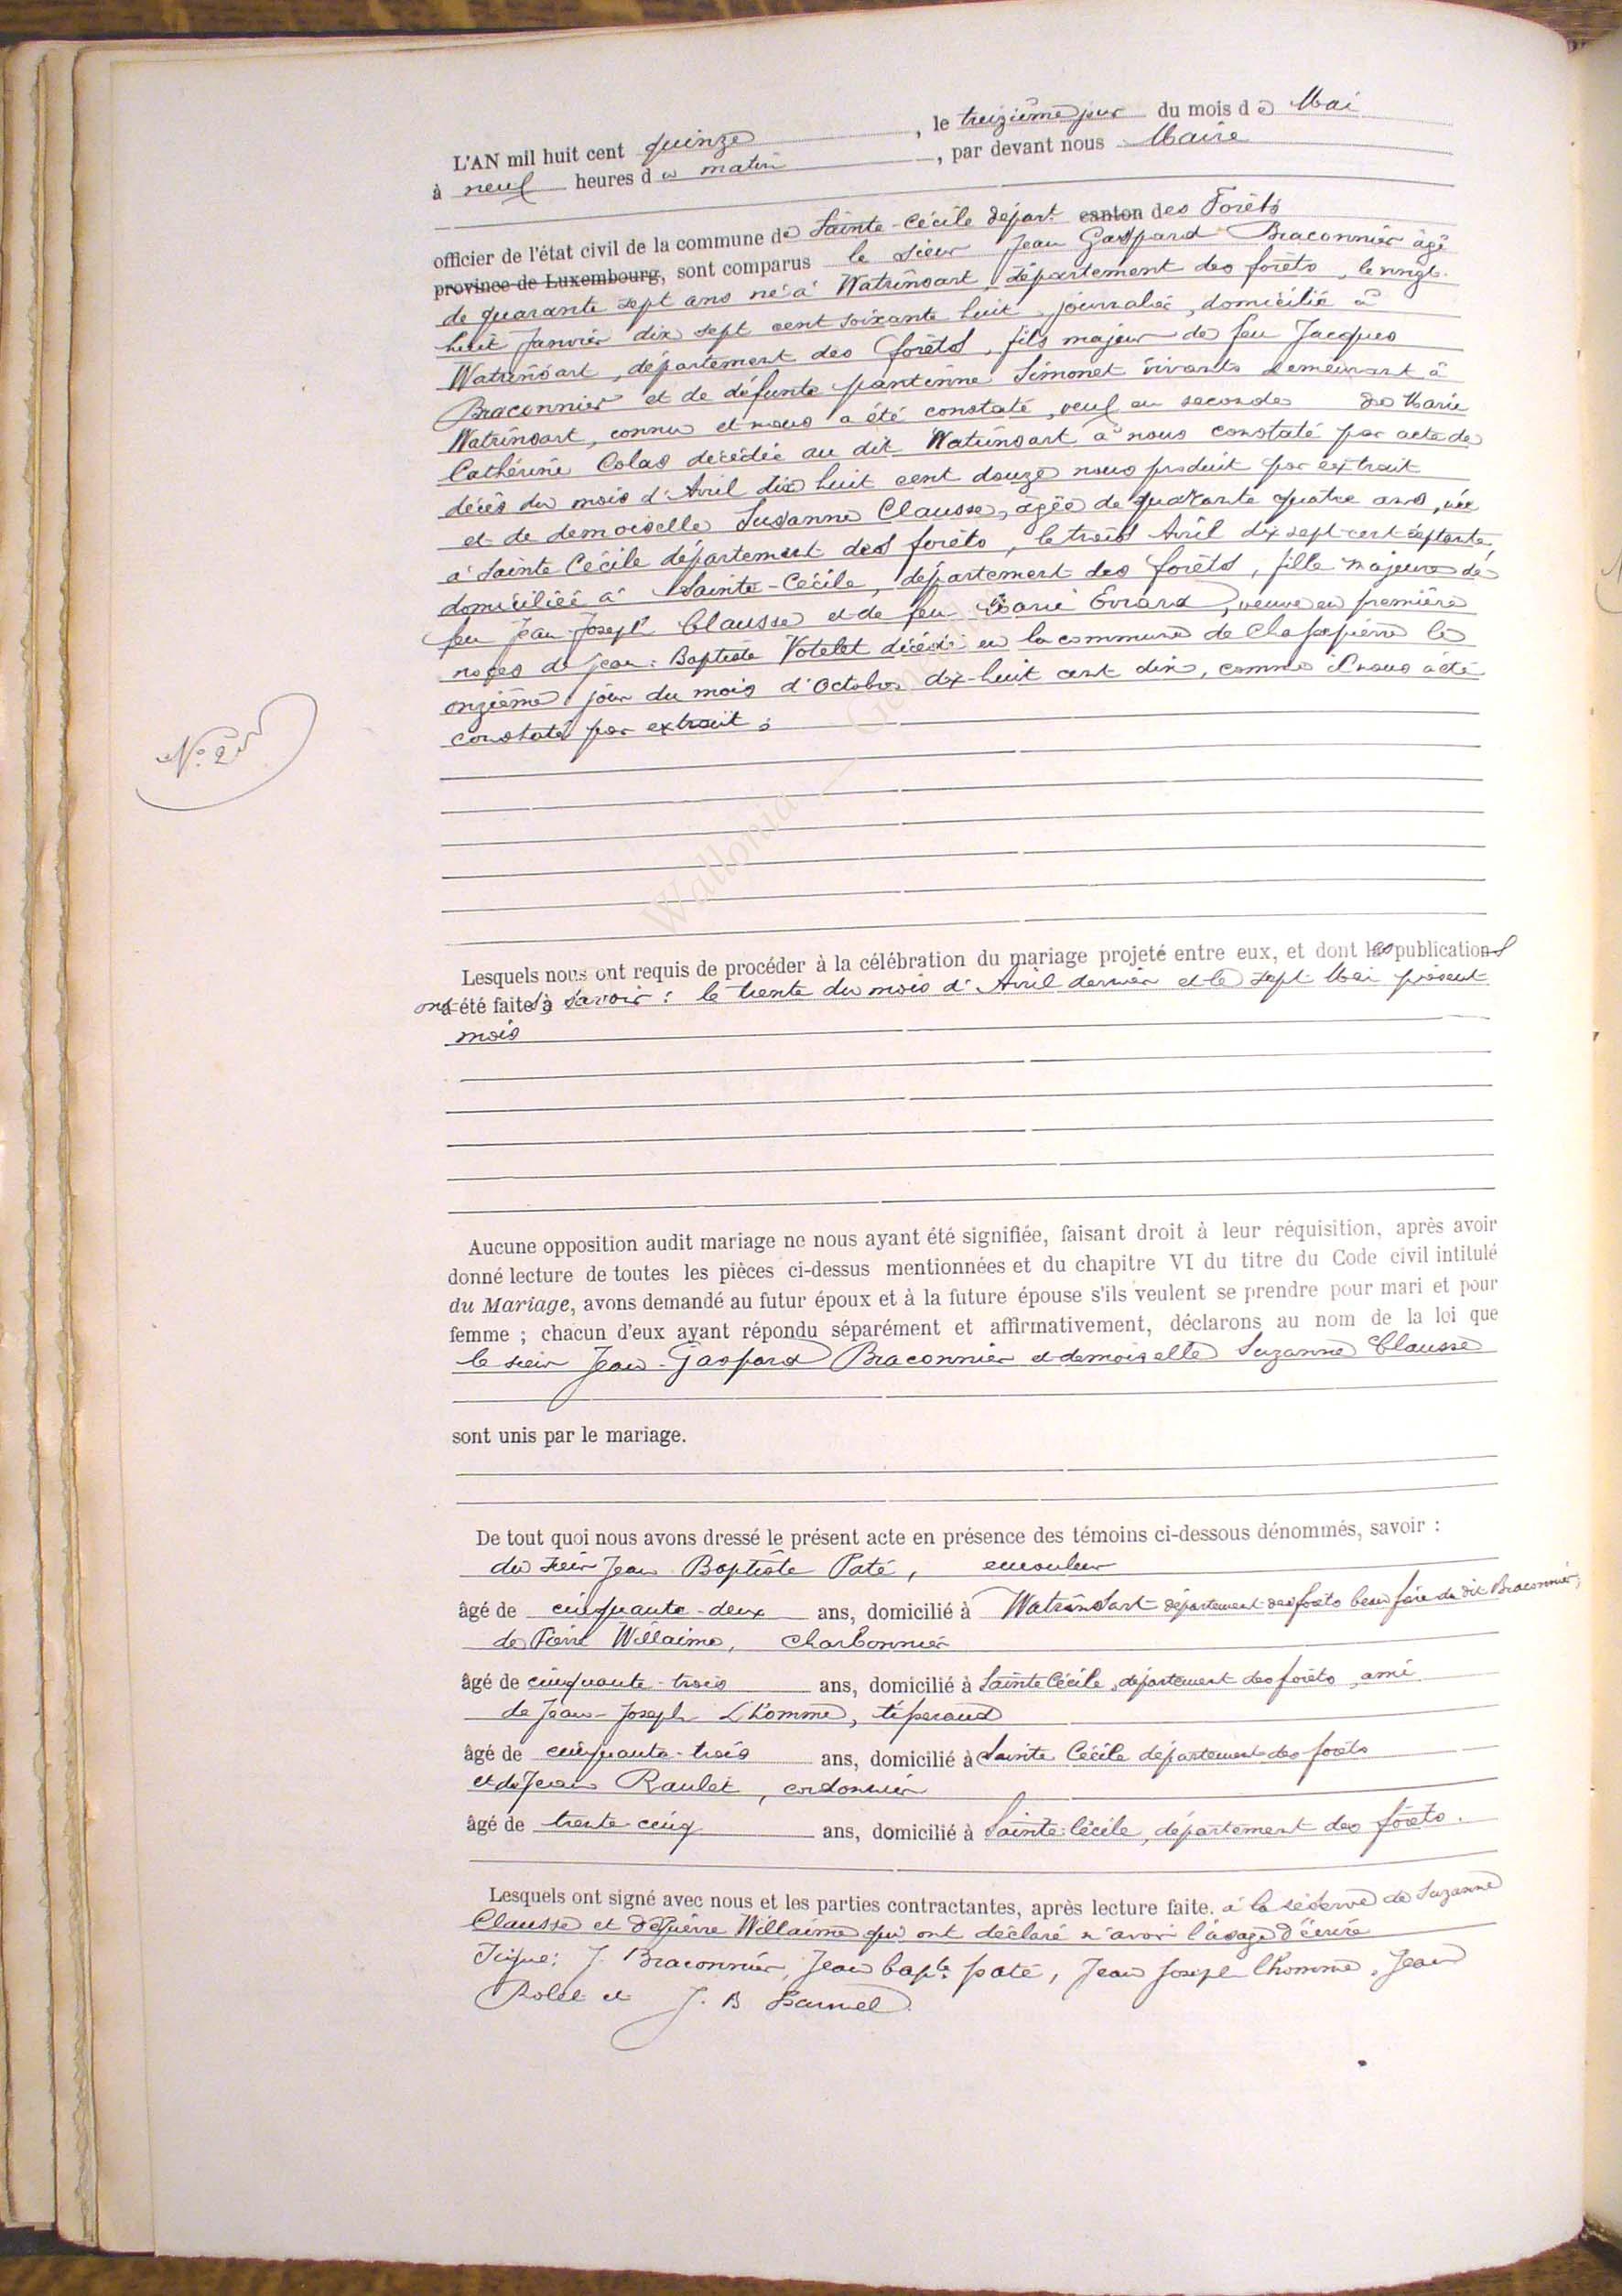 L'AN mil huit cent quinze, le treizième jour du mois de Mai
à neuf heures du matin, par devant nous Maire
officier de l'état civil de la commune de Sainte-Cécile départ. canton des Forêts
province de Luxembourg, sont comparus le sieur Jean Gaspard Braconnier âgé
de quarante sept ans né à Watrinsart, département des forêts, le vingt-
huit Janvier dix sept cent soixante huit, journalier, domicilié à
Watrinsart, département des forêts, fils majeur de feu Jacques
Braconnier et de défunte Simonet vivants demeurant à
Watrinsart, connu et nous a été constaté, veuf en secondes de Marie
Cathérine Colas décédée au dit Watrinsart à nous constaté par acte de
décès du mois d'Avril dix huit cent douze nous produit par extrait
et de demoiselle Susanne Clausse, âgée de quarante quatre ans, née
à Sainte Cécile département des forêts, le trois Avril dix sept cent septante,
domiciliée à Sainte-Cécile, département des forêts, fille majeure de
feu Jean-Joseph Clausse et de feu Marie Evrard, veuve en première
noces de Jean-Baptiste Votelet décédé en la commune de Chassepierre le
onzième jour du mois d'Octobre dix-huit cent dix, comme il nous a été
constaté par extrait ;
N° 2
Lesquels nous ont requis de procéder à la célébration du mariage projeté entre eux, et dont les publications
ont été faites à savoir : le trente du mois d'Avril dernier et le sept Mai présent
mois
Aucune opposition audit mariage ne nous ayant été signifiée, faisant droit à leur réquisition, après avoir
donné lecture de toutes les pièces ci-dessus mentionnées et du chapitre VI du titre du Code civil intitulé
du Mariage, avons demandé au futur époux et à la future épouse s'ils veulent se prendre pour mari et pour
femme ; chacun d'eux ayant répondu séparément et affirmativement, déclarons au nom de la loi que
le sieur Jean-Gaspard Braconnier et demoiselle Suzanne Clausse
sont unis par le mariage.
De tout quoi nous avons dressé le présent acte en présence des témoins ci-dessous dénommés, savoir :
du sieur Jean Baptiste Paté, émouleur
âgé de cinquante-deux ans, domicilié à Watrinsart département des forêts beau frère du dit Braconnier,
de Pierre Willaime, charbonnier
âgé de cinquante-trois ans, domicilié à Sainte Cécile, département des forêts, ami
de Jean-Joseph L'homme, tisserand
âgé de cinquante-trois ans, domicilié à Sainte Cécile département des forêts
et de Jean Raulet, cordonnier
âgé de trente-cinq ans, domicilié à Sainte-Cécile, département des forêts.
Lesquels ont signé avec nous et les parties contractantes, après lecture faite. à la réserve de Suzanne
Clausse et de Pierre Willaime qui ont déclaré n'avoir l'usage d'écrire
Signé: J. Braconnier, Jean bapte paté, Jean Joseph Lhomme, Jean
Rolet et J. B
Wallonia